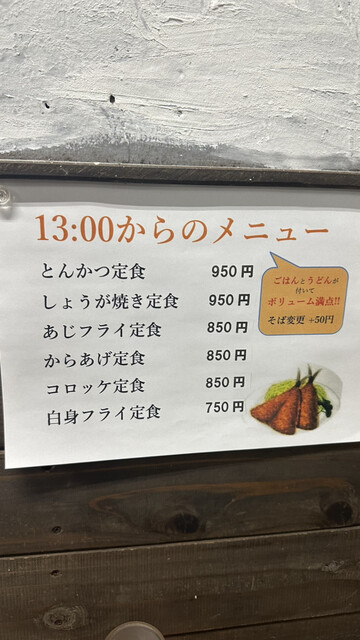 13:00からのメニュー
とんかつ定食 950円
しょうが焼き定食 950円
あじフライ定食 850円
からあげ定食 850円
コロッケ定食 850円
白身フライ定食 750円
ごはんとうどんが
付いて
ボリューム満点!!
そば変更 +50円